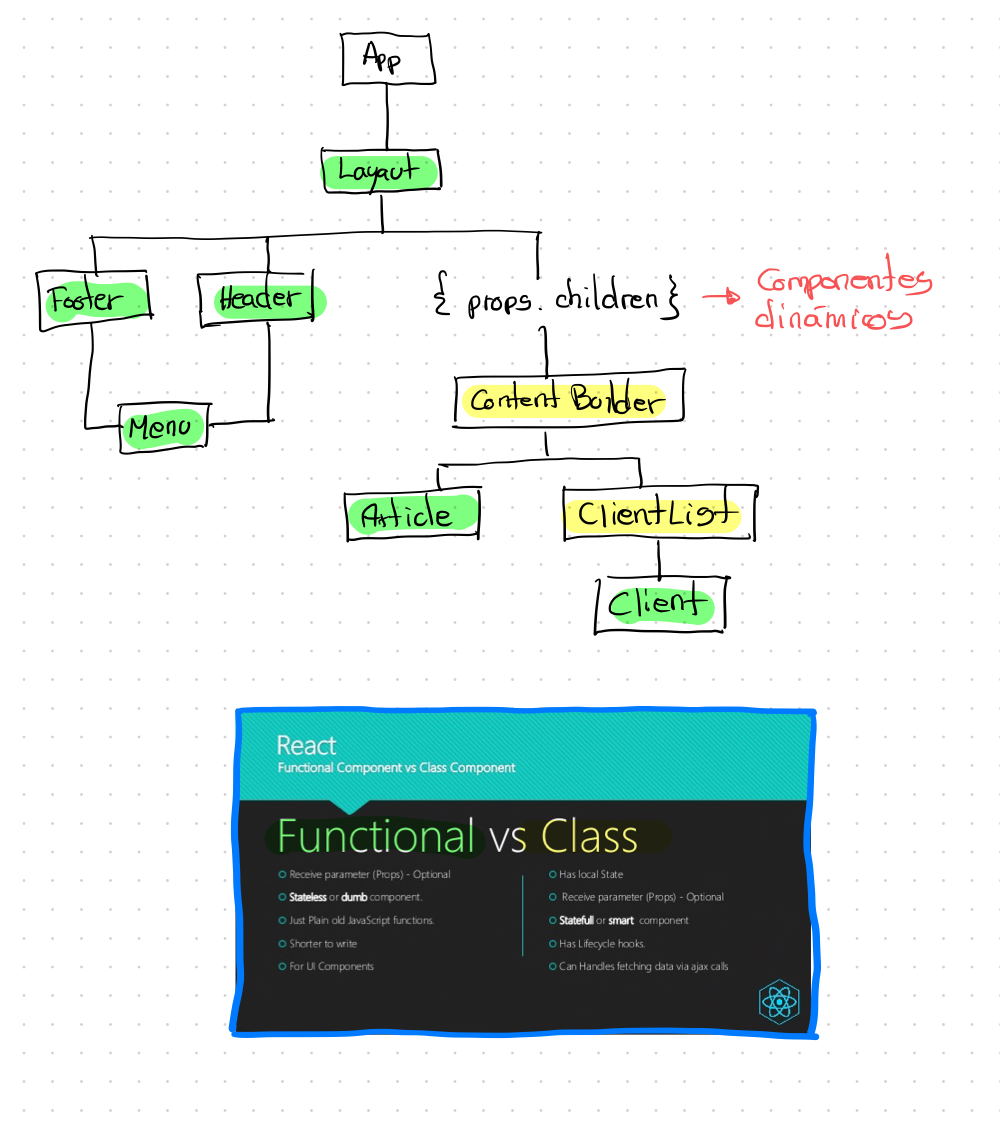 App
Layaut
Footer
Header
{ props. children }
→ Componentes
dinámicos
Content Builder
Menu
Article
ClientList
Client
React
Functional Component vs Class Component
Functional vs Class
Receive parameter (Props) - Optional
Stateless or dumb component.
Just Plain old JavaScript functions.
Shorter to write
For UI Components
Has local State
Receive parameter (Props) - Optional
Statefull or smart component
Has Lifecycle hooks.
Can Handles fetching data via ajax calls